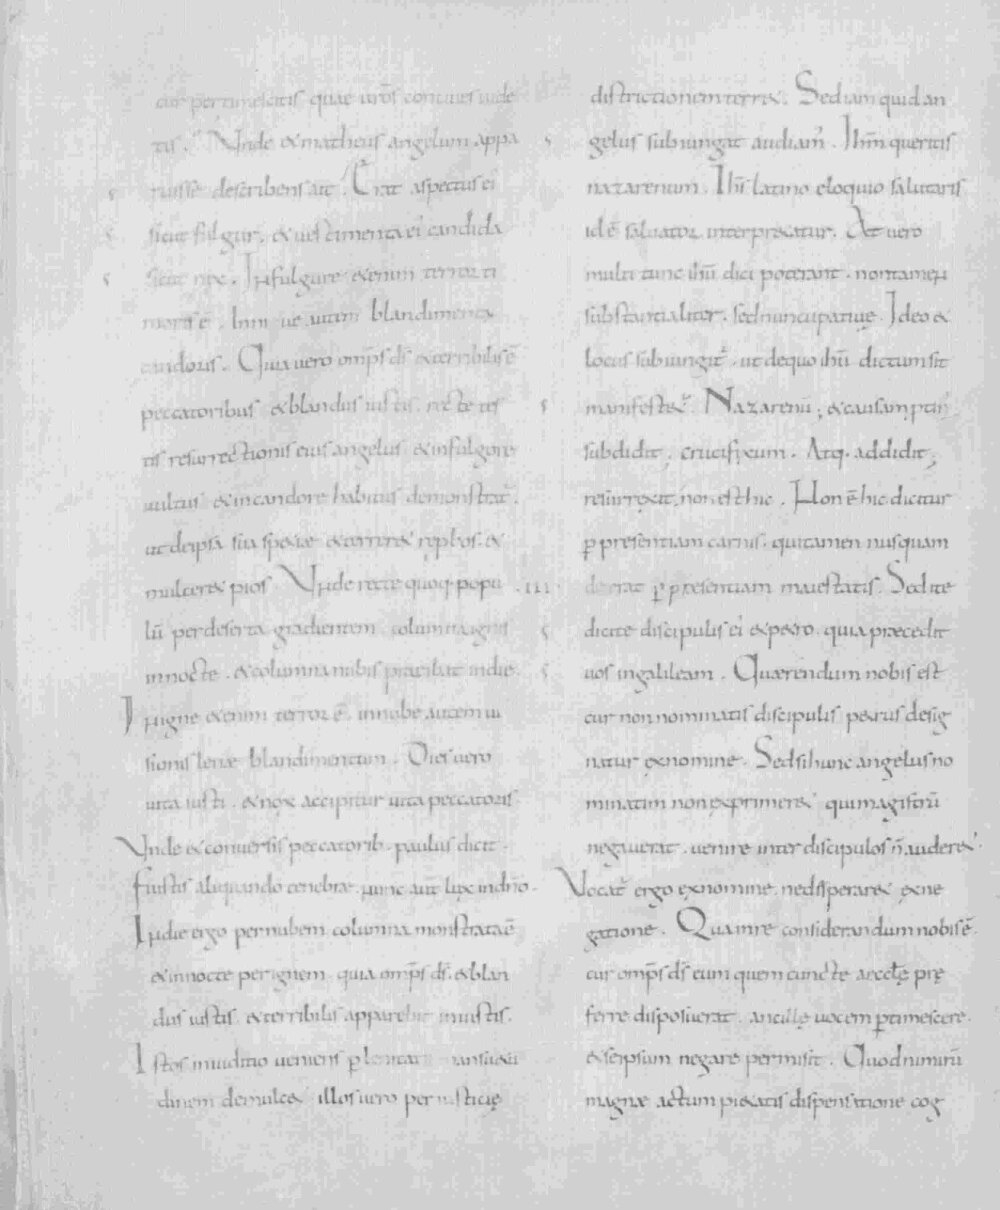 cur pertimescitis quae uros conciues uide
tis. Unde & matheus angelum appa
ruisse describens ait. Erat aspectus ei
sicut fulgur. & uestimenta ei candida
sicut nix. In fulgure &enim terror ti
moris ē. In niue autem blandimenta
candoris. Quia uero omps ds & terribilis ē
peccatoribus & blandus iustis. recte tes
tis resurrectionis eius angelus & in fulgore
uultus & in candore habitus demonstrat.
ut de ipsa sua specie & terrer& rep̄bos. &
mulcer& pios. Unde recte quoq. popu
lū per deserta gradientem columna ignis
in nocte. & columna nubis praeibat in die.
In igne &enim terror ē. in nube autem ui
sionis lenae blandimentum. Dies uero
uita iusti. & nox accipitur uita peccatoris.
Unde & conuersis peccatorib. paulus dicit.
Fuistis aliquando tenebrae. nunc aut lux in dno.
In die ergo per nubem columna monstrata ē
& in nocte per ignem. quia omps ds. & blan
dus iustis. & terribilis apparebit iniustis.
Istos in iuditio ueniens p̱ lenitatis mansuetu
dinem demulc& illos uero per iusticię
districtionem terr&. Sed iam quid an
gelus subiungat audiam̄. Ihm queritis
nazarenum. Ihs latino eloquio salutaris
id ē saluator interpretatur. At uero
multi tunc ihū dici poterant. non tamen
substantialiter. sed nuncupatiuę. Ideo &
locus subiungit. ut de quo ihū dictum sit
manifest&. Nazarenū; & causam ptin
subdidit, crucifixum. Atq. addidit,
resurrexit, non est hic. Non ē hic dicitur
p̱ presentiam carnis. qui tamen nusquam
deerat p̱ presentiam maiestatis. Sed ite
dicite discipulis ei & petro. quia praecedit
uos in galileam. Quaerendum nobis est
cur non nominatis discipulis petrus desig
natur ex nomine. Sed si hunc angelus no
minatim non exprimer& qui magistrū
negauerat. uenire inter discipulos n̄ auder&.
Vocat ergo ex nomine. ne disperar& ex ne
gatione. Qua in re considerandum nobis ē.
cur omps ds eum quem cunctę aecclę prę
ferre disposuerat. ancillę uocem p̱timescere.
& se ipsum negare permisit. Quod nimirū
magnae actum pietatis dispensatione cog